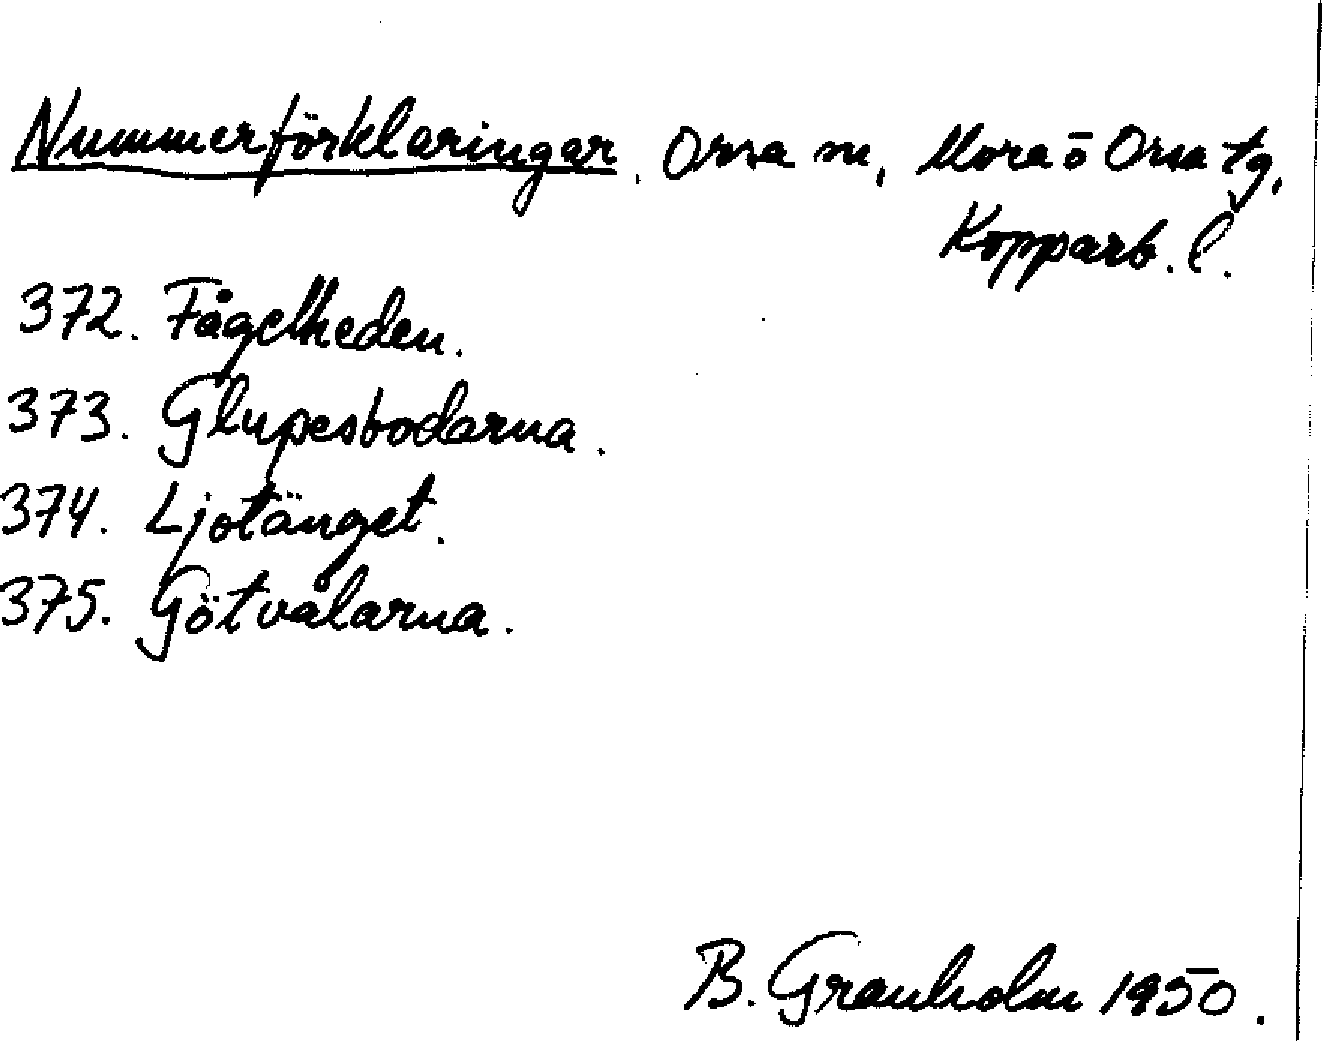 Nummerförklaringar, Orsa m, Mora ō Orsa tg,
Kopparb. l.
372. Fågelheden.
373. Glupesbodarna.
374. Ljotänget.
375. Götvålarna.
B. Granholm 1950.